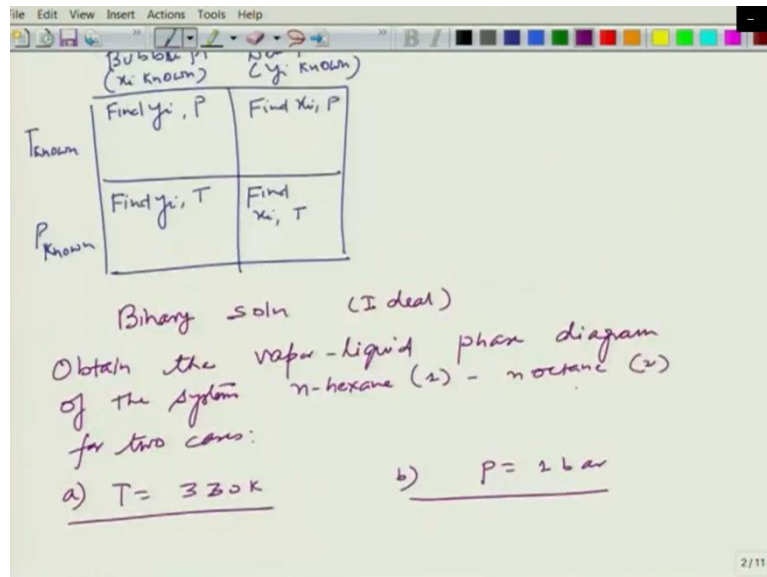 ile Edit View Insert Actions Tools Help
Bubble pt
(xi known)
(yi known)
Find yi, P
Find xi, P
Tknown
Find yi, T
Find
xi, T
Pknown
Binary soln (Ideal)
Obtain the vapor-liquid phase diagram
of the system n-hexane (1) - n octane (2)
for two cases:
a) T= 330K
b) P= 1 bar
2/11